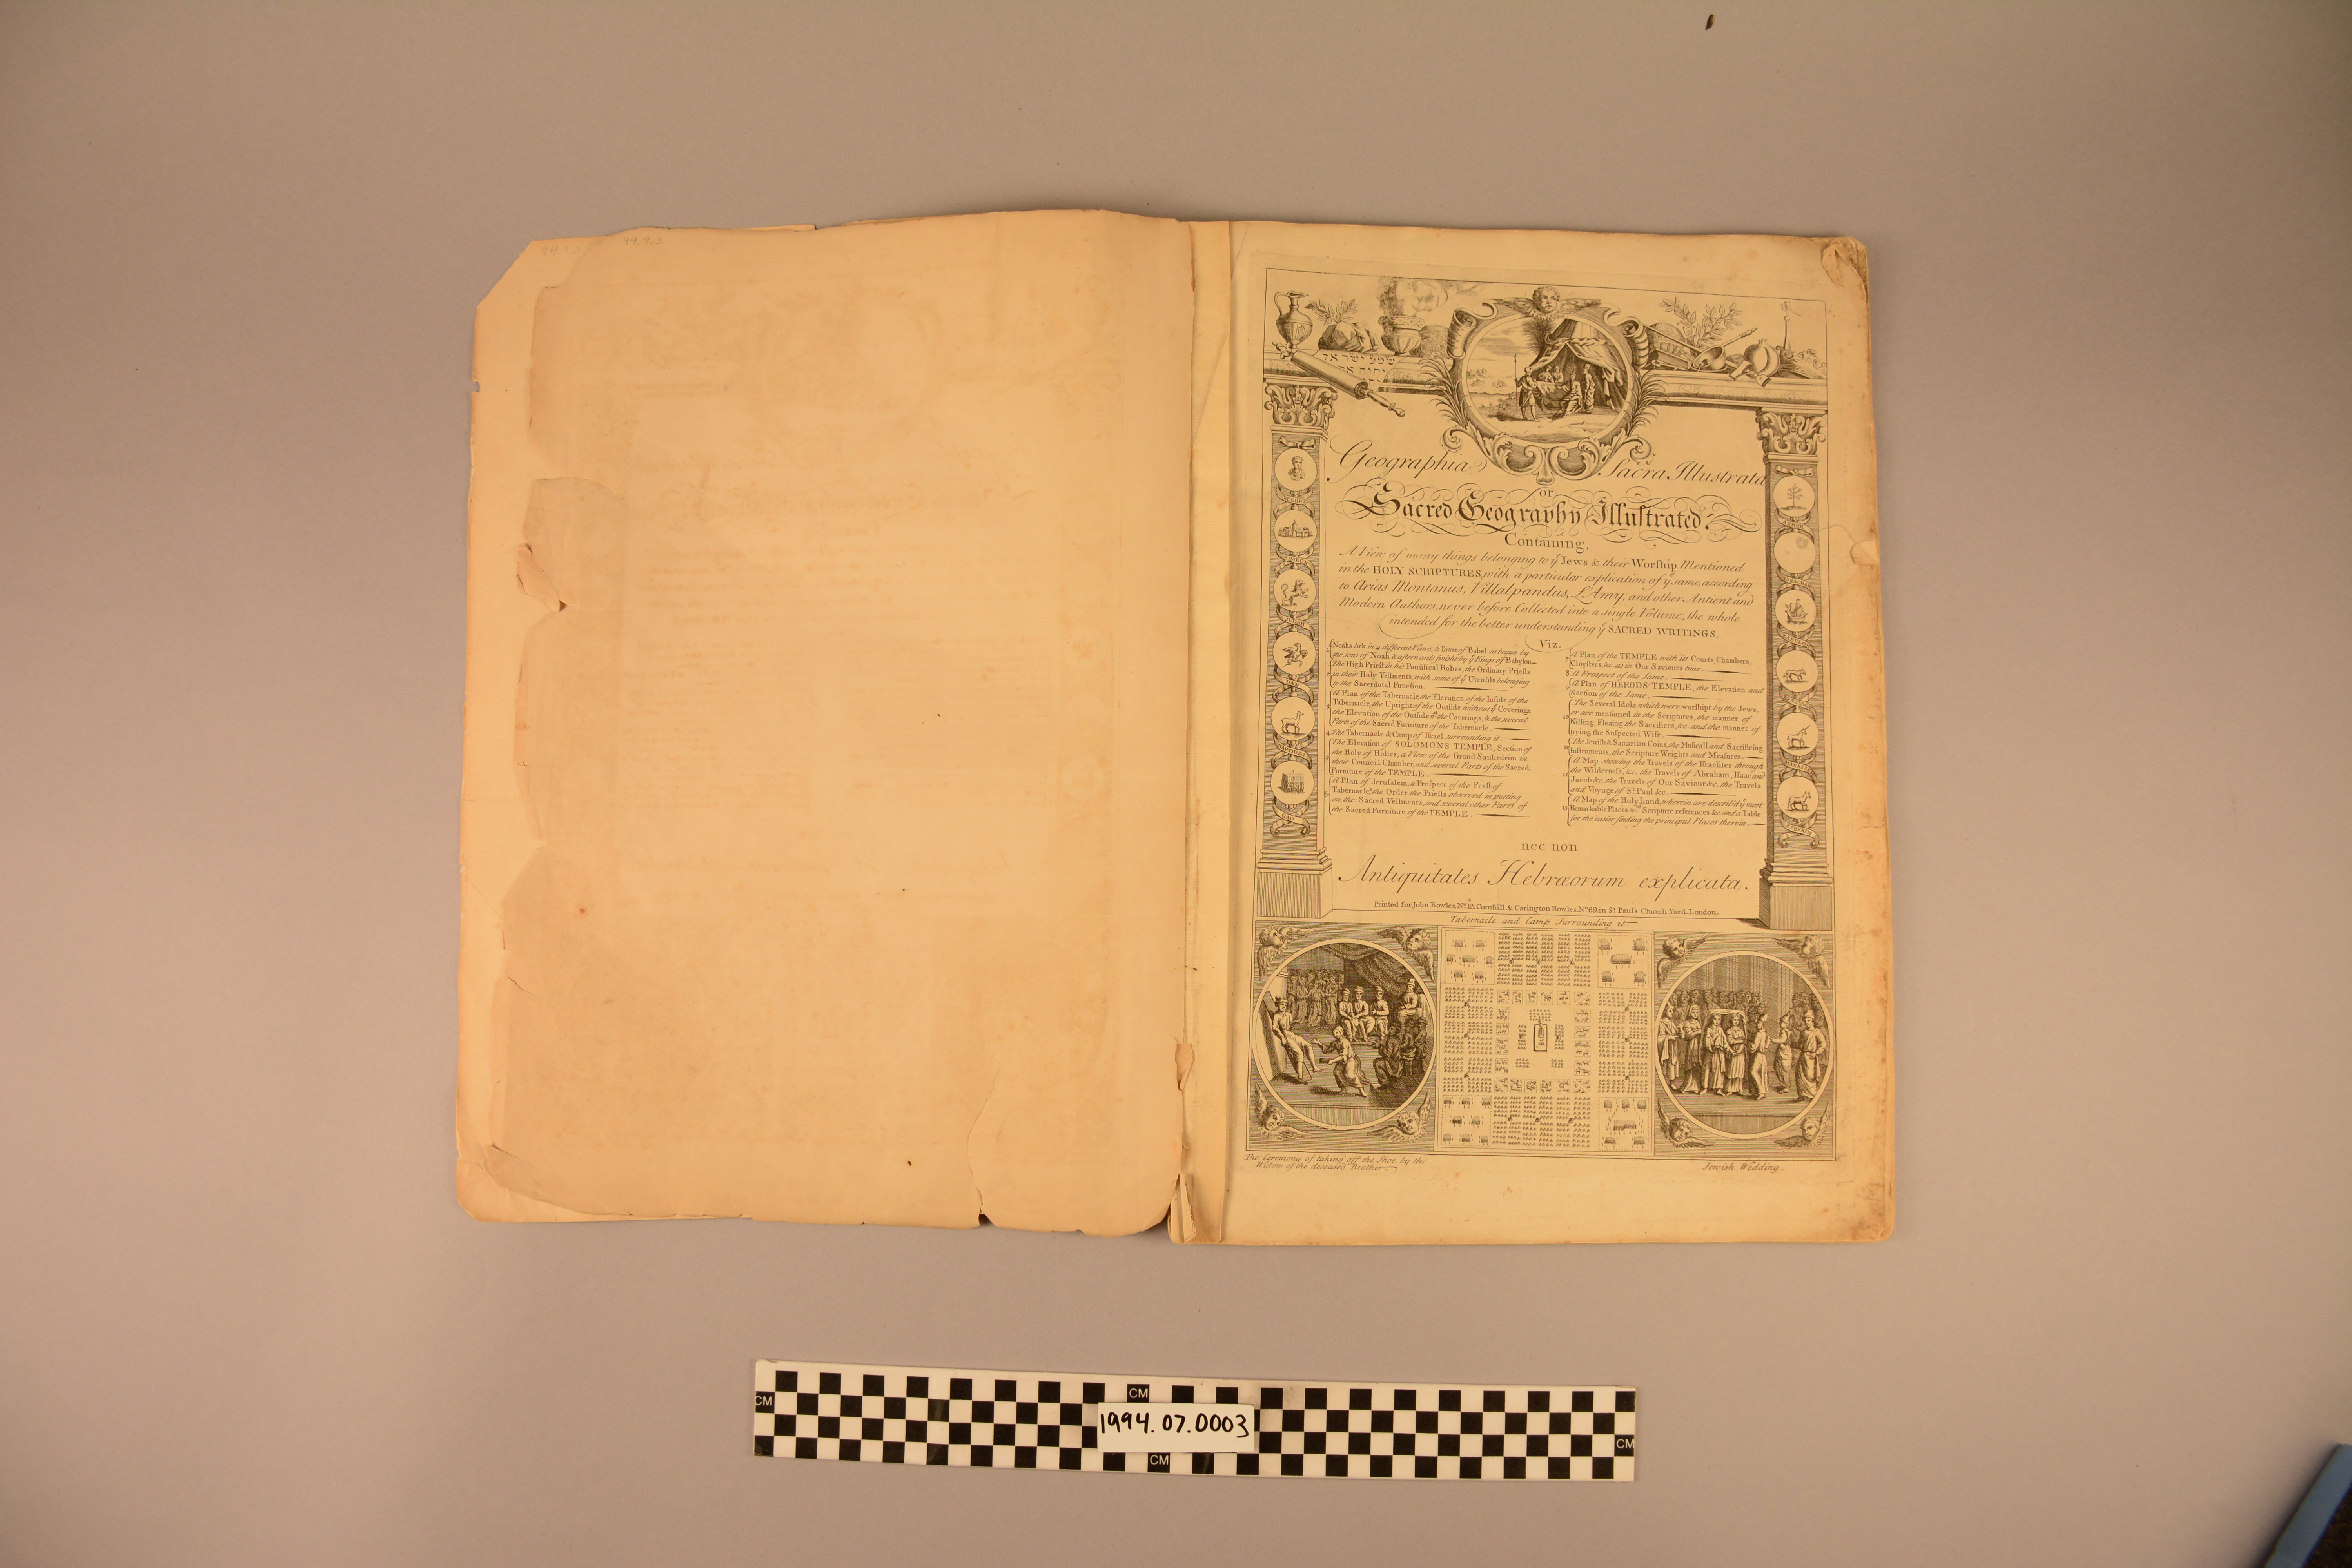 94.7.3
94.7.3
שמע ישראל
Geographia Sacra Illustrata
or
Sacred Geography Illustrated.
Containing,
A View of many things belonging to yͤ Jews & their Worſhip Mentioned
in the HOLY SCRIPTURES, with a particular explication of yͤ same, according
to Arias Montanus, Villalpandus, L'Amy, and other Antient and
Modern Authors, never before Collected into a single Volume, the whole
intended for the better understanding yͤ SACRED WRITINGS.
Viz.
Noahs Ark in 4 different Views, yͤ Tower of Babel as begun by
the Sons of Noah & afterwards finisht by yͤ Kings of Babylon
The High Prieſt in his Pontifical Robes, the Ordinary Prieſts
in their Holy Veſtments, with some of yͤ Utenſils belonging
to the Sacerdotal Function.
A Plan of the Tabernacle, the Elevation of the Inſide of the
Tabernacle, the Upright of the Outſide without yͤ Coverings,
the Elevation of the Outſide wͭͪ the Coverings, & the several
Parts of the Sacred Furniture of the Tabernacle.
4 The Tabernacle & Camp of Iſrael surrounding it.
The Elevation of SOLOMONS TEMPLE, Section of
the Holy of Holies, a View of the Grand Sanhedrim in
their Council Chamber, and several Parts of the Sacred
Furniture of the TEMPLE.
A Plan of Jeruſalem, a Proſpect of the Feaſt of
Tabernacles, the Order the Prieſts observed in putting
on the Sacred Veſtments, and several other Parts of
the Sacred Furniture of the TEMPLE.
7 A Plan of the TEMPLE with its Courts, Chambers,
Cloyſters, &c. as in Our Saviours time.
8 A Proſpect of the Same.
9 A Plan of HERODS TEMPLE, the Elevation and
Section of the Same.
The Several Idols which were worſhipt by the Jews,
or are mentioned in the Scriptures, the manner of
10 Killing, Fleaing, the Sacrifices, &c. and the manner of
trying the Suſpected Wife.
The Jewiſh & Samaritan Coins, the Muſicall and Sacrificing
11 Inſtruments, the Scripture Weights and Meaſures.
A Map shewing the Travels of the Iſraelites through
the Wilderneſs, &c. the Travels of Abraham, Iſaac and
12 Jacob &c. the Travels of Our Saviour &c. the Travels
and Voyage of Sͭ. Paul &c.
A Map of the Holy Land, wherein are describ'd yͤ most
13 Remarkable Places wͭͪ Scripture references &c and a Table
for the easier finding the principal Places therein.
nec non
Antiquitates Hebræorum explicata.
Printed for John Bowles, Nº. 13 Cornhill, & Carington Bowles, Nº. 69 in Sͭ. Pauls Church Yard, London.
Tabernacle and Camp Surrounding it
The Ceremony of taking off the Shoe by the
Widow of the deceased Brother
Jewish Wedding.
CM
CM
1994.07.0003
CM
CM